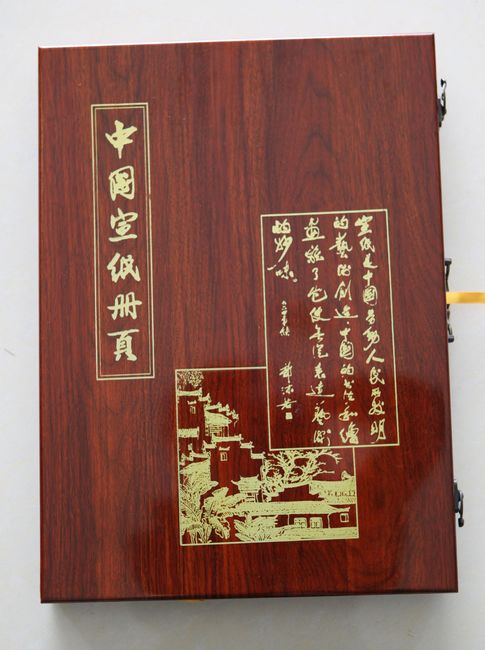 中國宣紙册頁
宣紙是中國勞動人民所發明
的藝術創造中國的書法和繪
畫離了它便無從表達藝術
的妙味
郭沫若